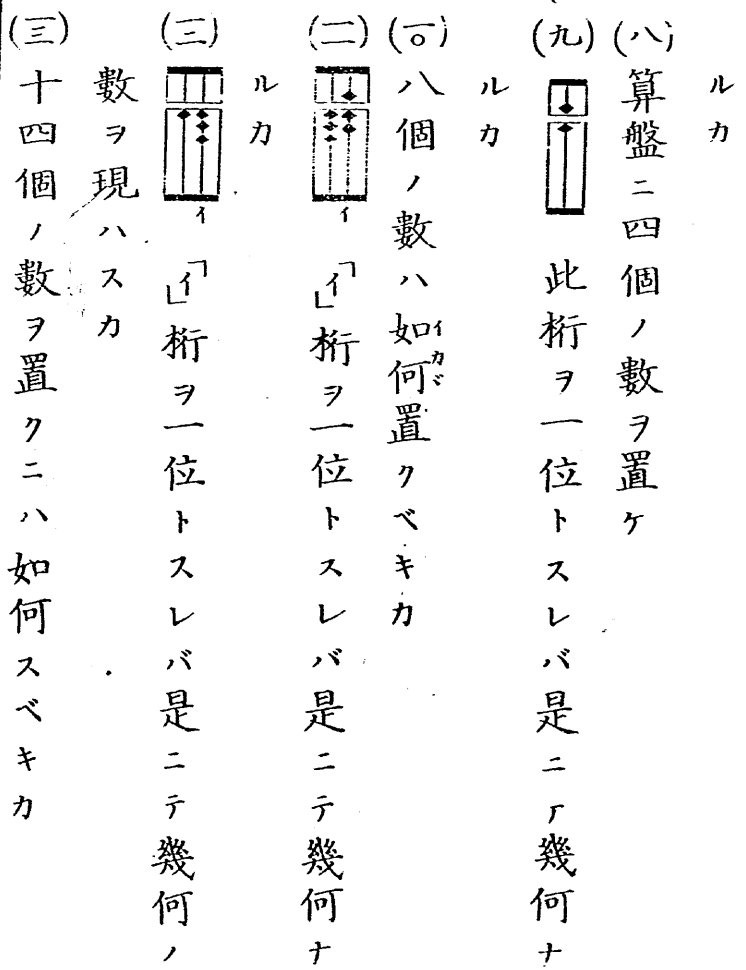 ルカ
(八) 算盤ニ四個ノ數ヲ置ケ
(九) 此桁ヲ一位トスレバ是ニテ幾何ナ
ルカ
(一〇) 八個ノ數ハ如何置クベキカ
イカヾ
(一一) イ 「イ」桁ヲ一位トスレバ是ニテ幾何ナ
ルカ
(一二) イ 「イ」桁ヲ一位トスレバ是ニテ幾何ノ
數ヲ現ハスカ
(一三) 十四個ノ數ヲ置クニハ如何スベキカ